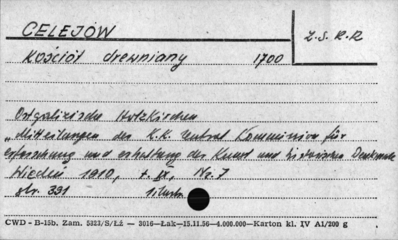 CELEJÓW
Z.S.R.R
Kościół drewniany 1700
Ostgalizische Holzkirchen
"Mitteilungen der K.K. Zentral Kommission für
erforschung und erhaltung der Kunst und historischen Denkmale
Wiedeń 1910, t. IX, No. 7
str. 331 1 ilustr.
CWD - B-15b. Zam. 5323/S/Łź — 3016—Łak—15.11.56—4.000.000—Karton kl. IV A1/200 g